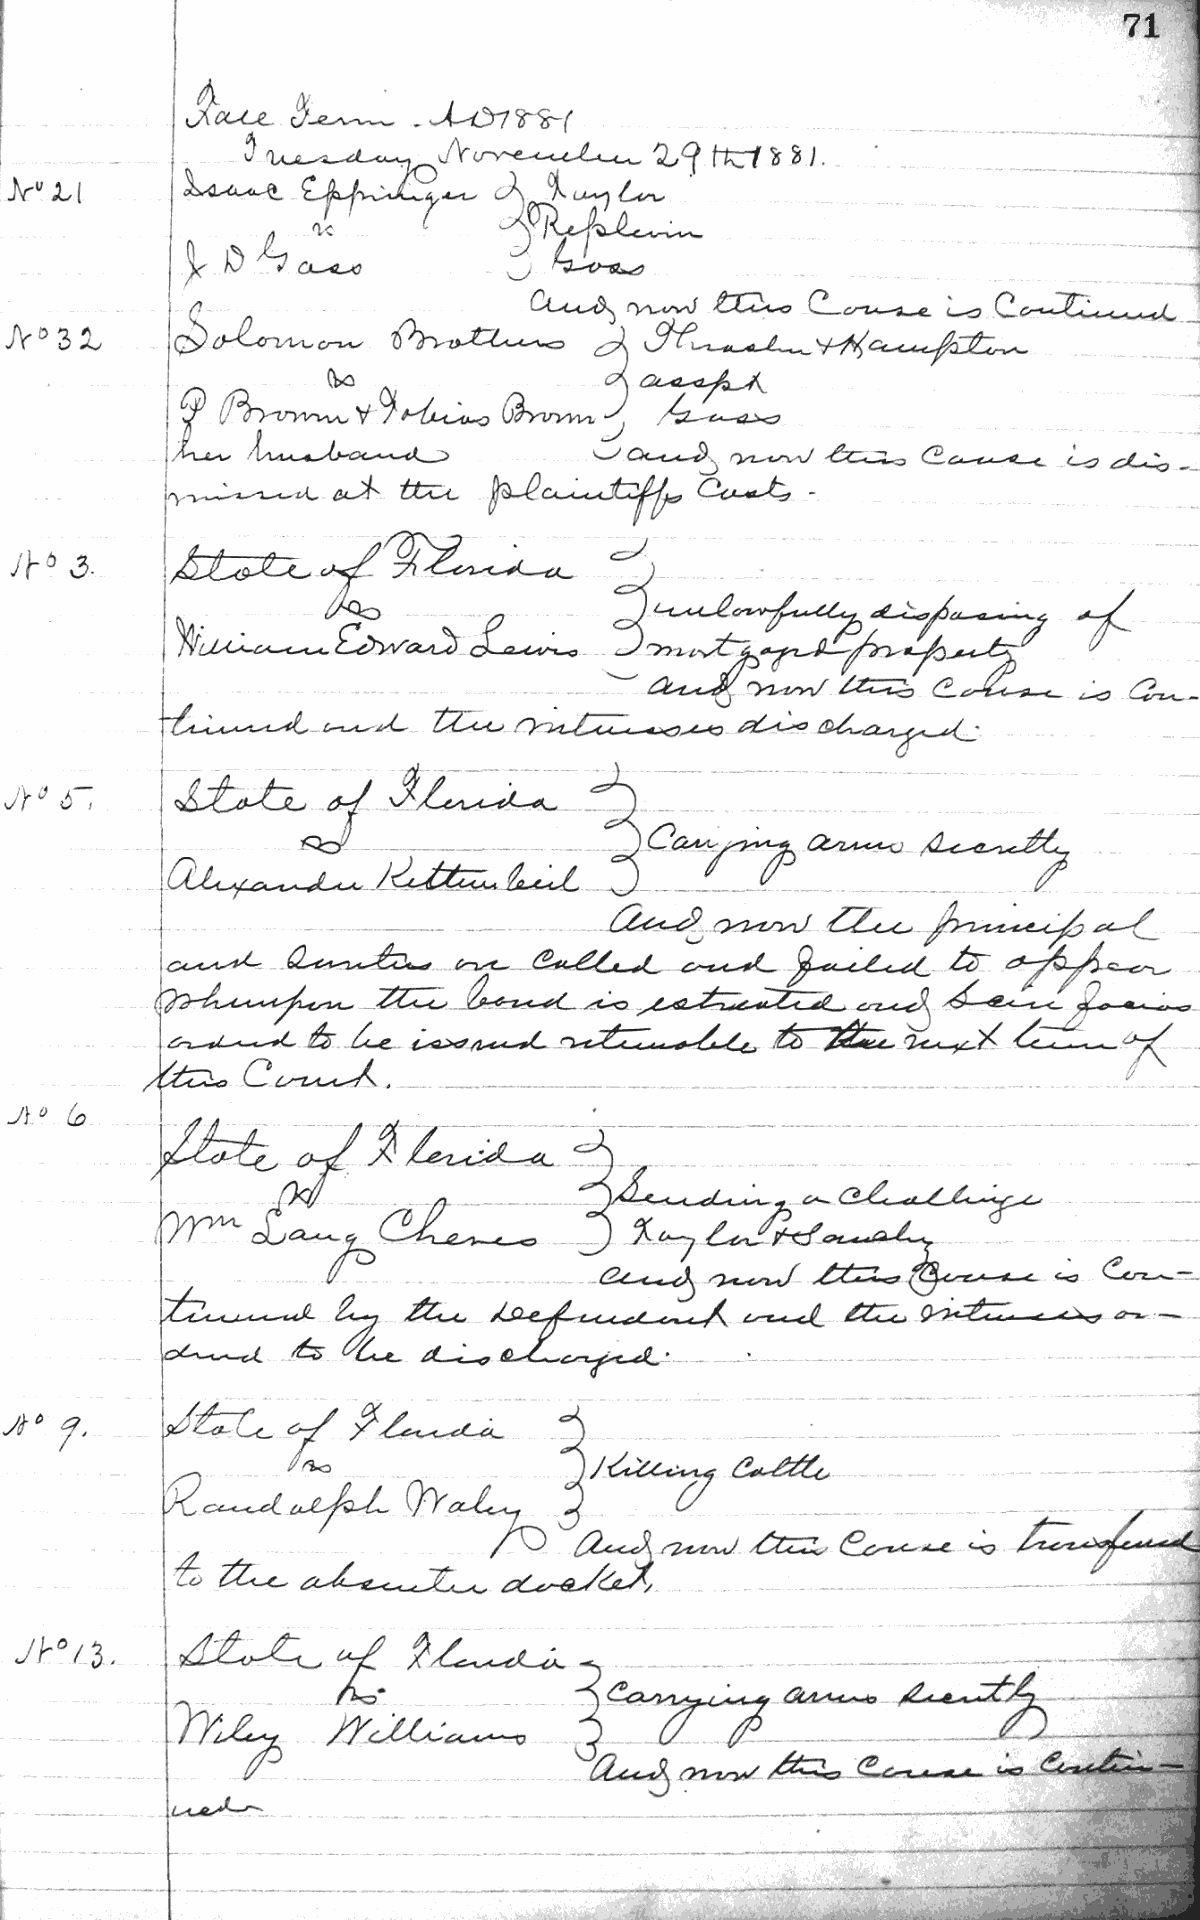 71
Fall Term. AD 1881
Tuesday November 29th 1881.
No 21 Isaac Eppinger } Taylor
vs } Replevin
J D Goss } Goss
And now this Cause is Continued
No 32 Solomon Brothers } Thrasher & Hampton
vs } asspt
P Brown & Tobias Brown } Goss
her husband } and now this Cause is dis-
missed at the plaintiffs Costs.
No 3. State of Florida }
vs } unlawfully disposing of
William Edward Lewis } mortgaged property
and now this Cause is Con-
tinued and the witnesses discharged.
No 5. State of Florida }
vs } Carrying arms secretly
Alexander Kettenbeil }
And now the principal
and Sureties are Called and failed to appear
Whereupon the bond is estreated and Scire facias
ordered to be issued returnable to the next term of
this Court.
No 6
State of Florida }
vs } Sending a Challenge
Wm Lang Cheves } Taylor &
and now this Cause is Con-
tinued by the Defendant and the witnesses or-
dered to be discharged.
No 9. State of Florida }
vs } Killing Cattle
Randolph Waley }
And now this Cause is transferred
to the absentee docket,
No 13. State of Florida }
vs. } Carrying arms secretly
Wiley Williams }
And now this Cause is Contin-
ued